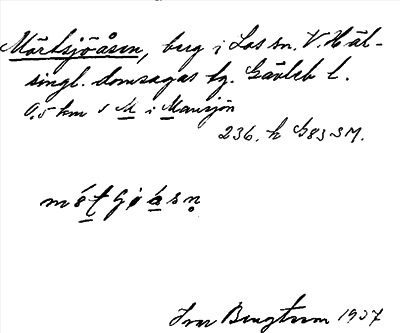 Mörtsjöåsen, berg i Los sn. V. Häl-
singl. domsagas tg. Gävleb l.
0,5 km S M i Mansjön
236. h G83 SM.
mö́t ǥø ås n̥
Ivar Bengtsson 1937